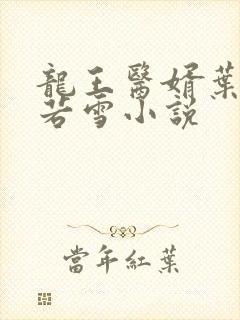 龍王醫婿葉
若雪小說
當年紅葉